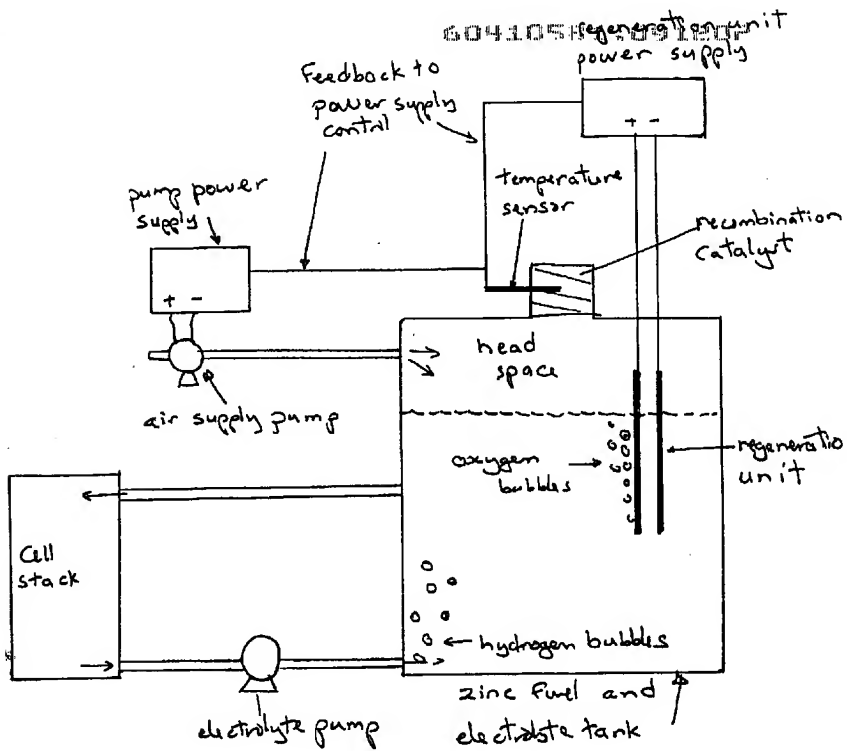 regeneration unit
power supply
Feedback to
power supply
control
+ -
temperature
sensor
pump power
supply
recombination
catalyst
+ -
head
space
air supply pump
oxygen
bubbles
regeneratio
unit
Cell
stack
hydrogen bubbles
zinc fuel and
electrolyte tank
electrolyte pump